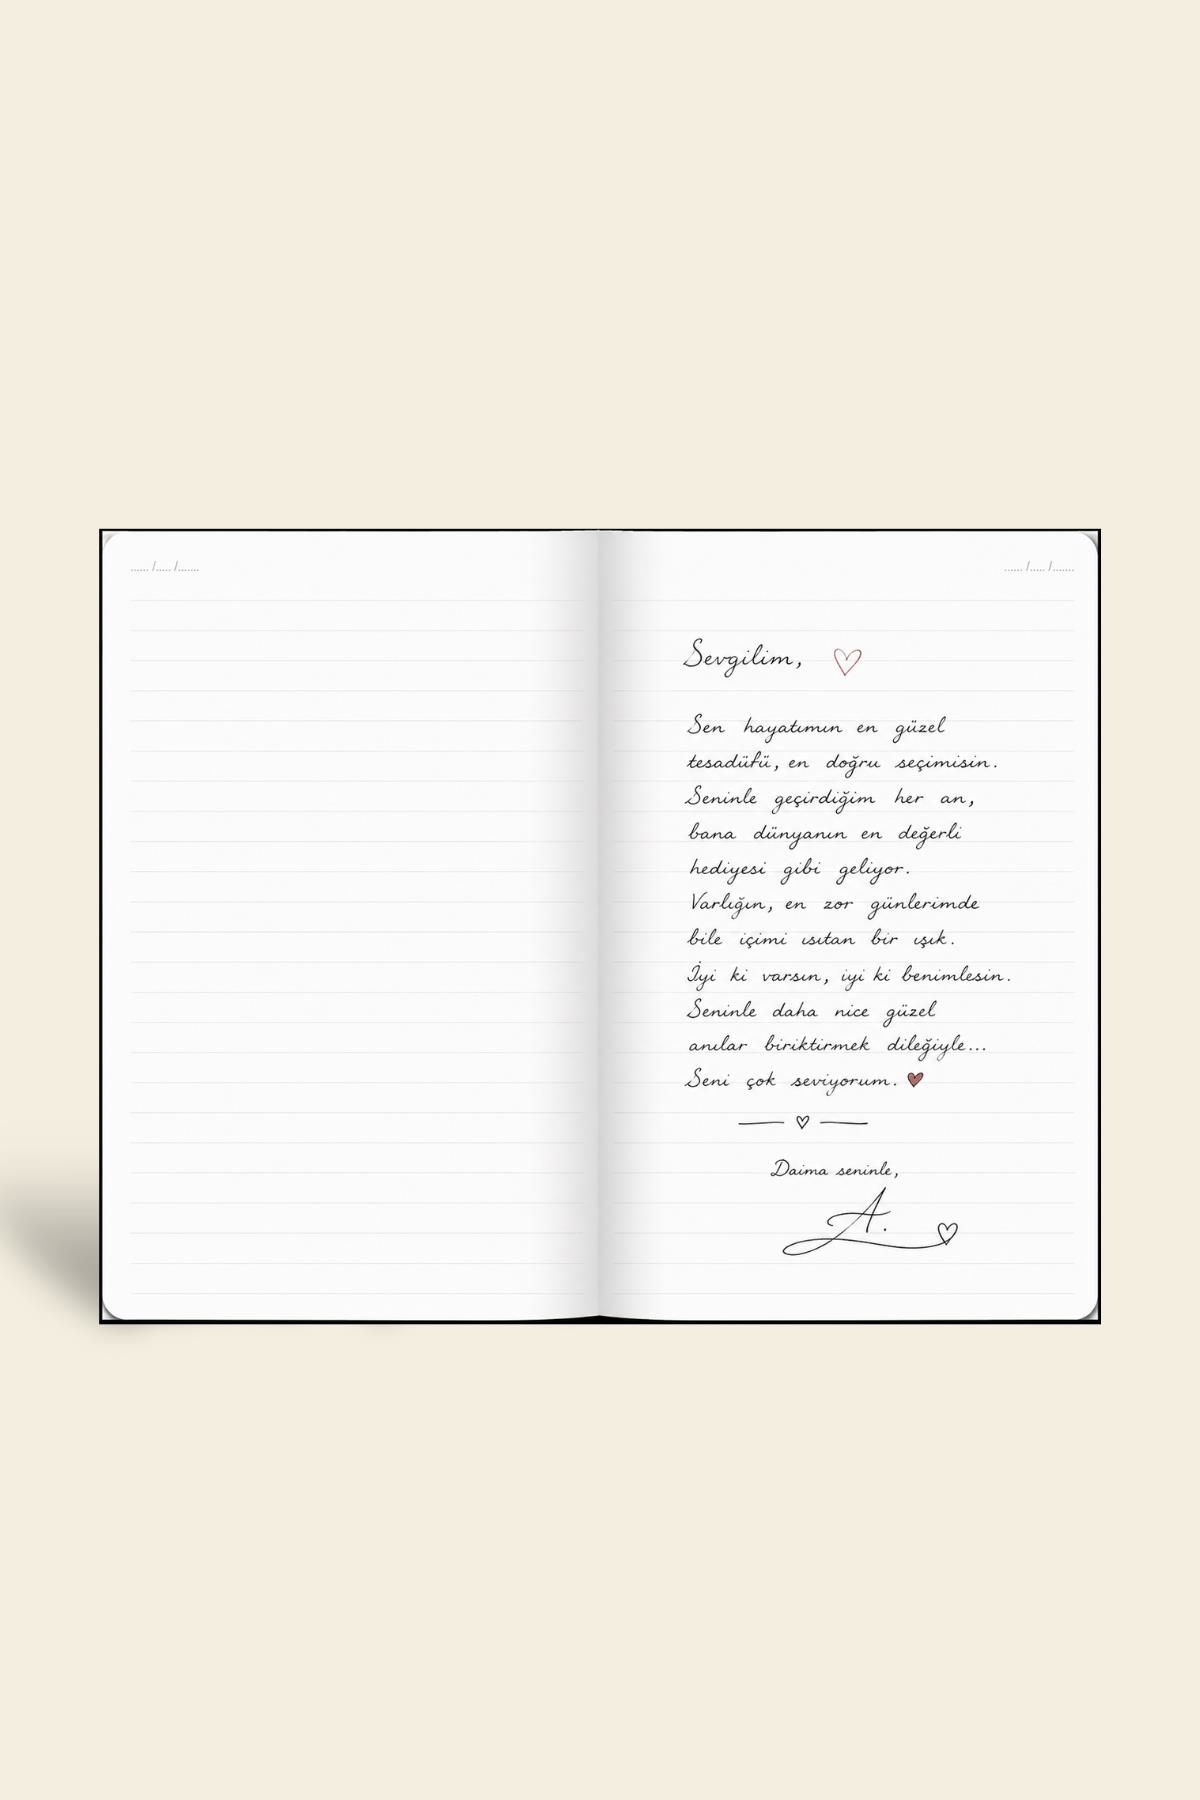 ...... /..... /.......
...... /..... /.......
Sevgilim, ♡
Sen hayatımın en güzel
tesadüfü, en doğru seçimisin.
Seninle geçirdiğim her an,
bana dünyanın en değerli
hediyesi gibi geliyor.
Varlığın, en zor günlerimde
bile içimi ısıtan bir ışık.
İyi ki varsın, iyi ki benimlesin.
Seninle daha nice güzel
anılar biriktirmek dileğiyle...
Seni çok seviyorum. ♥
Daima seninle,
A.